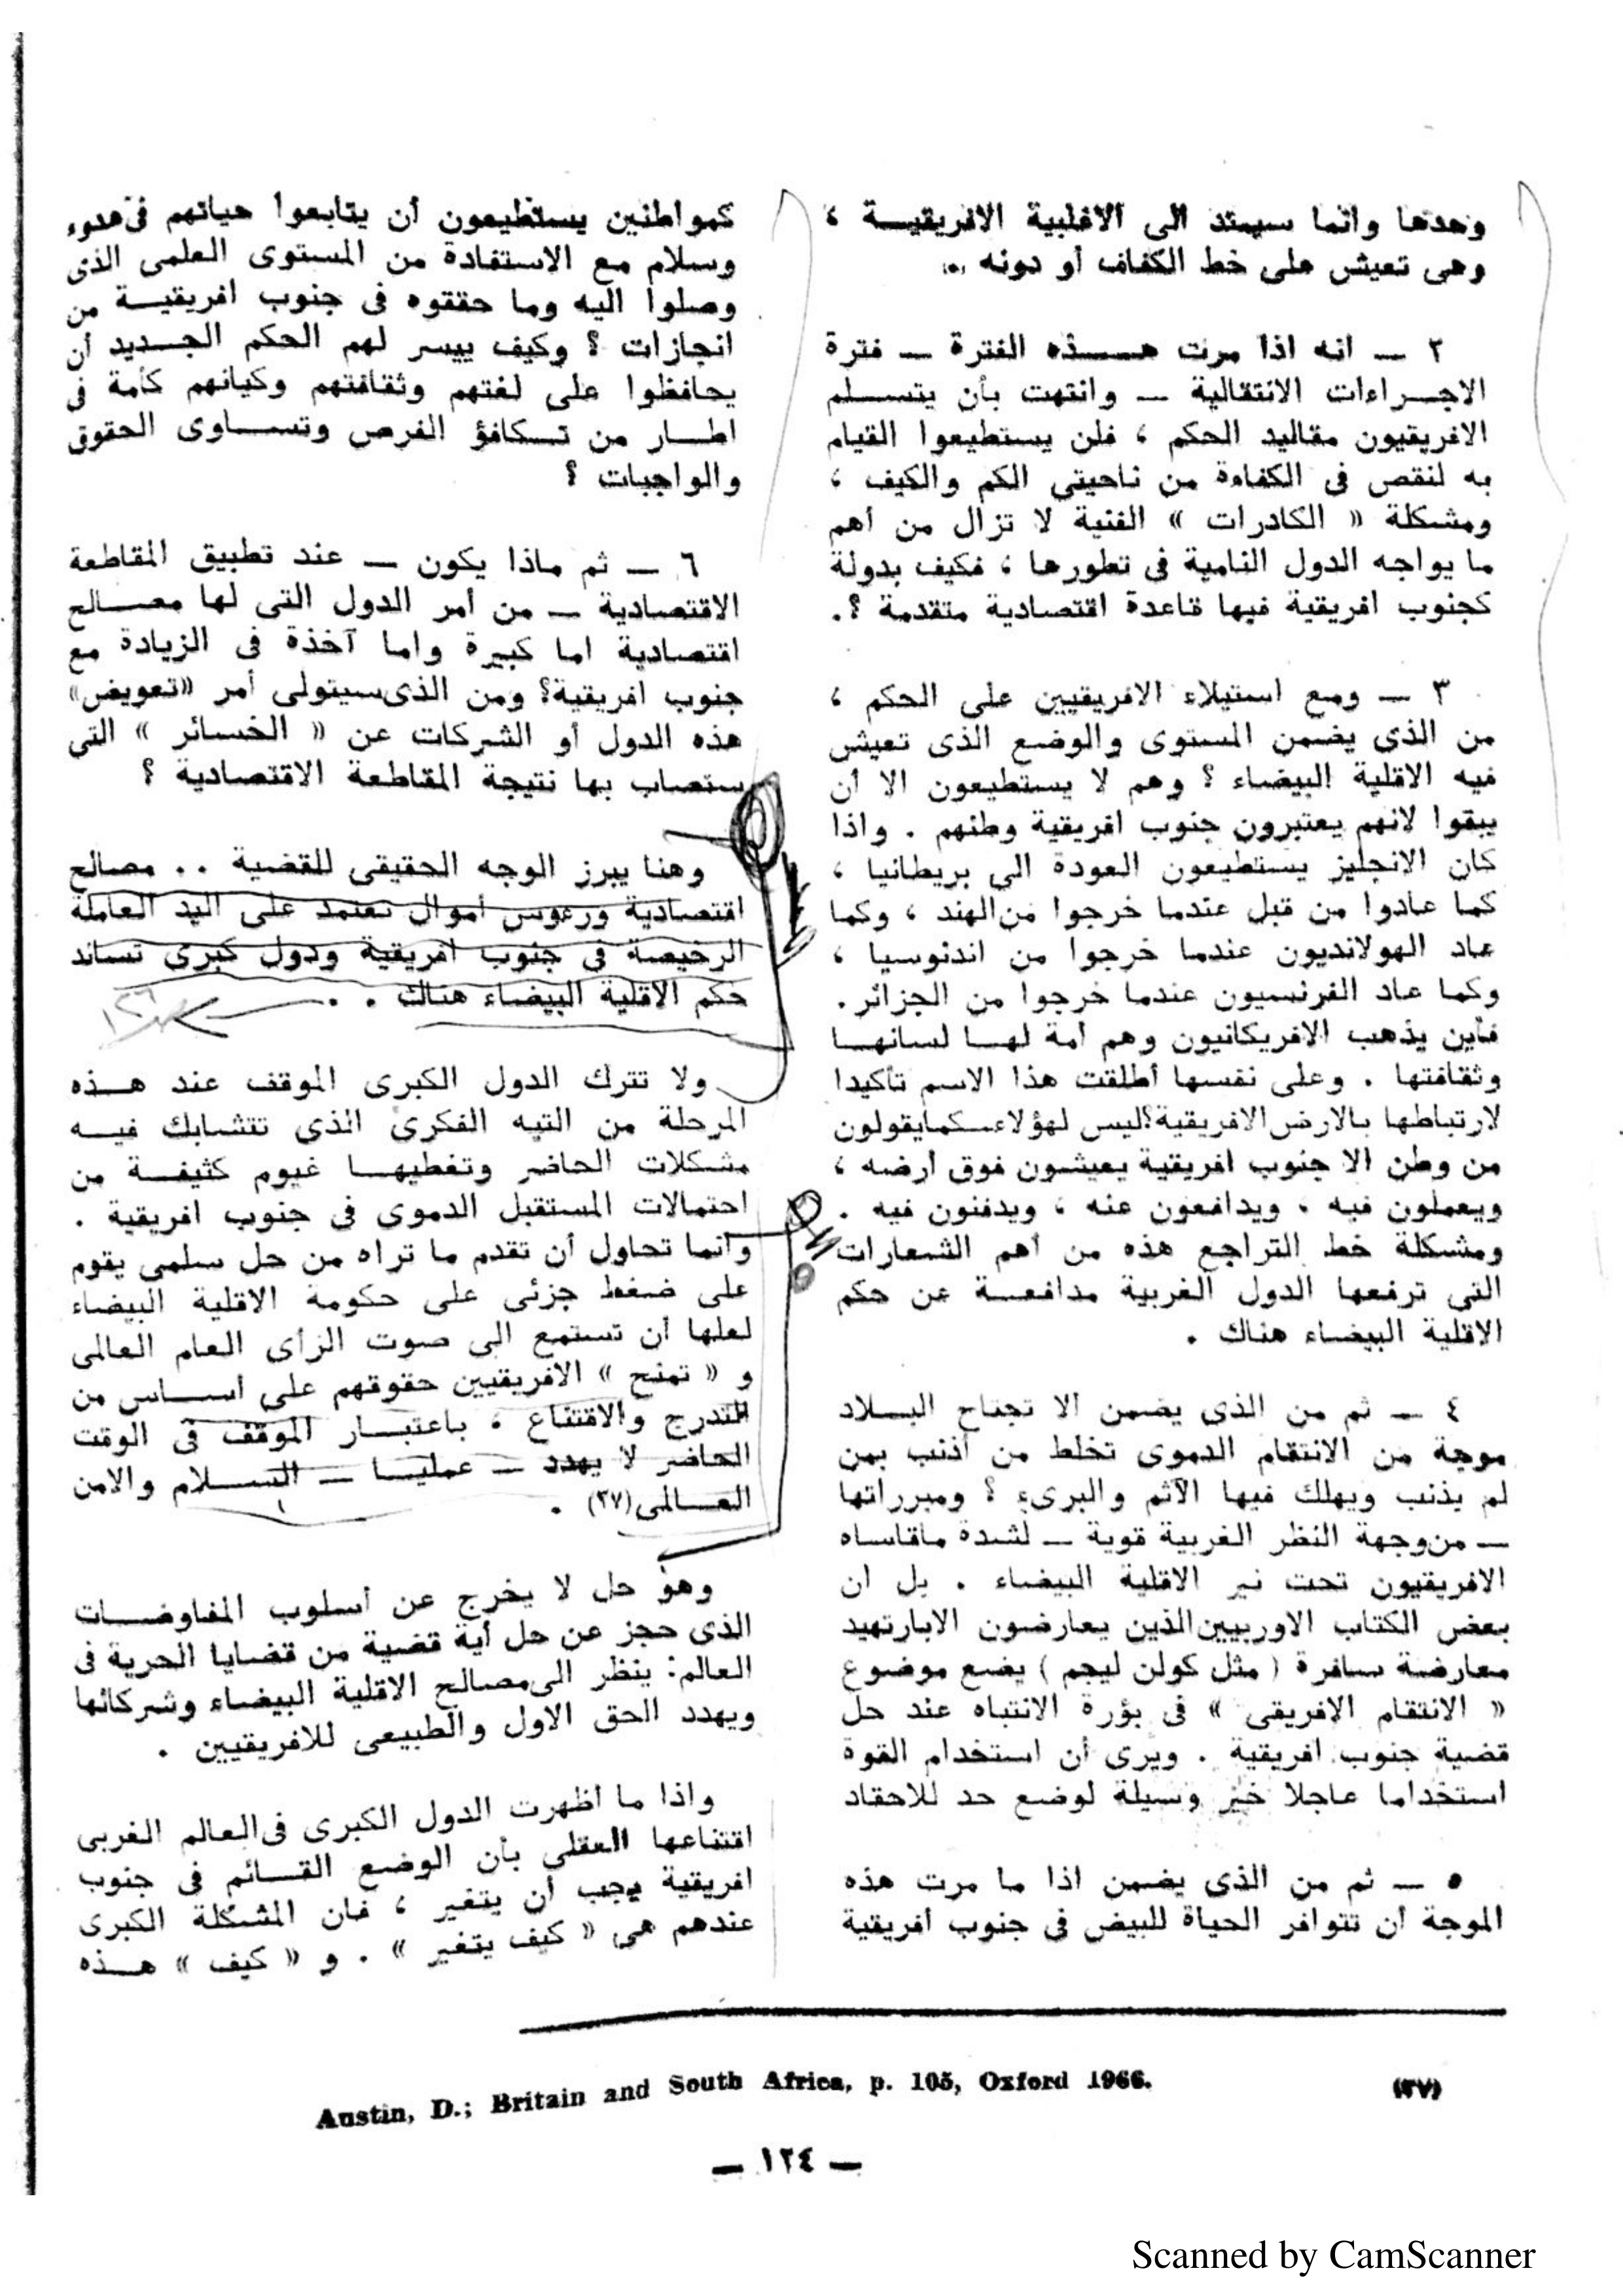 وحدها وانما سيمتد الى الاغلبية الافريقيــة ،
وهى تعيش على خط الكفاف أو دونه .
٢ — انه اذا مرت هــــذه الفترة — فترة
الاجــراءات الانتقالية — وانتهت بأن يتســـلم
الافريقيون مقاليد الحكم ، فلن يستطيعوا القيام
به لنقص فى الكفاءة من ناحيتى الكم والكيف ،
ومشكلة « الكادرات » الفنية لا تزال من أهم
ما يواجه الدول النامية فى تطورها ، فكيف بدولة
كجنوب افريقية فيها قاعدة اقتصادية متقدمة ؟.
٣ — ومع استيلاء الافريقيين على الحكم ،
من الذى يضمن المستوى والوضع الذى تعيش
فيه الاقلية البيضاء ؟ وهم لا يستطيعون الا أن
يبقوا لانهم يعتبرون جنوب افريقية وطنهم . واذا
كان الانجليز يستطيعون العودة الى بريطانيا ،
كما عادوا من قبل عندما خرجوا من الهند ، وكما
عاد الهولانديون عندما خرجوا من اندنوسيا ،
وكما عاد الفرنسيون عندما خرجوا من الجزائر.
فأين يذهب الافريكانيون وهم أمة لهــا لسانهــا
وثقافتها . وعلى نفسها أطلقت هذا الاسم تأكيدا
لارتباطها بالارض الافريقية؟ليس لهؤلاء_كمايقولون
من وطن الا جنوب افريقية يعيشون فوق أرضه ،
ويعملون فيه ، ويدافعون عنه ، ويدفنون فيه .
ومشكلة خط التراجع هذه من أهم الشعارات
التى ترفعها الدول الغربية مدافعــة عن حكم
الاقلية البيضاء هناك .
٤ — ثم من الذى يضمن ألا تجتاح البــلاد
موجة من الانتقام الدموى تخلط من أذنب بمن
لم يذنب ويهلك فيها الآثم والبرىء ؟ ومبرراتها
— من وجهة النظر الغربية قوية — لشدة ماقاساه
الافريقيون تحت نير الاقلية البيضاء . بل ان
بعض الكتاب الاوربيين الذين يعارضون الابارتهيد
معارضة سافرة ( مثل كولن ليجم ) يضع موضوع
« الانتقام الافريقى » فى بؤرة الانتباه عند حل
قضية جنوب افريقية . ويرى أن استخدام القوة
استخداما عاجلا خير وسيلة لوضع حد للاحقاد
٥ — ثم من الذى يضمن اذا ما مرت هذه
الموجة أن تتوافر الحياة للبيض فى جنوب أفريقية
كمواطنين يستطيعون أن يتابعوا حياتهم فى هدوء
وسلام مع الاستفادة من المستوى العلمى الذى
وصلوا اليه وما حققوه فى جنوب افريقيــة من
انجازات ؟ وكيف ييسر لهم الحكم الجــديد أن
يحافظوا على لغتهم وثقافتهم وكيانهم كأمة فى
اطــار من تــكافؤ الفرص وتســاوى الحقوق
والواجبات ؟
٦ — ثم ماذا يكون — عند تطبيق المقاطعة
الاقتصادية — من أمر الدول التى لها مصــالح
اقتصادية اما كبيرة واما آخذة فى الزيادة مع
جنوب افريقية؟ ومن الذى سيتولى أمر «تعويض»
هذه الدول أو الشركات عن « الخسائر » التى
ستصاب بها نتيجة المقاطعة الاقتصادية ؟
وهنا يبرز الوجه الحقيقى للقضية .. مصالح
اقتصادية ورءوس أموال تعتمد على اليد العاملة
الرخيصة فى جنوب افريقية ودول كبرى تساند
حكم الاقلية البيضاء هناك . .
ولا تترك الدول الكبرى الموقف عند هــذه
المرحلة من التيه الفكرى الذى تتشابك فيــه
مشكلات الحاضر وتغطيهــا غيوم كثيفــة من
احتمالات المستقبل الدموى فى جنوب افريقية .
وانما تحاول أن تقدم ما تراه من حل سلمى يقوم
على ضغط جزئى على حكومة الاقلية البيضاء
لعلها أن تستمع الى صوت الرأى العام العالمى
و « تمنح » الافريقيين حقوقهم على أســاس من
التدرج والاقتناع ، باعتبــار الموقف فى الوقت
الحاضر لا يهدد — عمليــا — الســلام والامن
العــالمى(٣٧) .
وهو حل لا يخرج عن أسلوب المفاوضــات
الذى حجز عن حل أية قضية من قضايا الحرية فى
العالم: ينظر الى مصالح الاقلية البيضاء وشركائها
ويهدد الحق الاول والطبيعى للافريقيين .
واذا ما أظهرت الدول الكبرى فى العالم الغربى
اقتناعها العقلى بأن الوضع القــائم فى جنوب
افريقية يجب أن يتغير ، فان المشكلة الكبرى
عندهم هى « كيف يتغير » . و « كيف » هــذه
(٣٧) Austin, D.; Britain and South Africa, p. 105, Oxford 1966.
— ١٢٤ —
Scanned by CamScanner